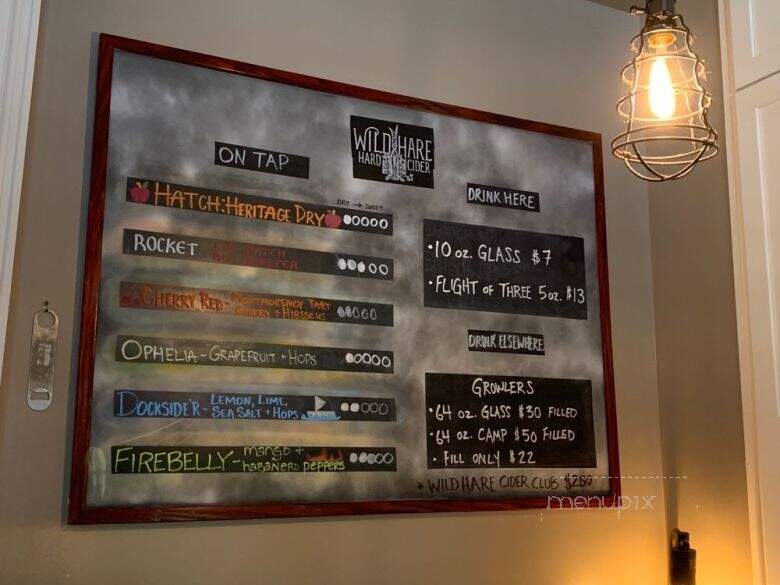 WILD HARE
HARD CIDER
ON TAP
DRY → SWEET
HATCH: HERITAGE DRY
ROCKET
CHERRY RED - MONTMORENCY TART
CHERRY + HIBISCUS
OPHELIA - GRAPEFRUIT + HOPS
DOCKSIDE'R - LEMON, LIME,
SEA SALT + HOPS
FIREBELLY - mango +
habañero peppers
DRINK HERE
• 10 oz. GLASS $7
• FLIGHT OF THREE 5 oz. $13
DRINK ELSEWHERE
GROWLERS
• 64 oz. GLASS $30 FILLED
• 64 oz. CAMP $50 FILLED
• FILL ONLY $22
WILD HARE CIDER CLUB $250
menupix